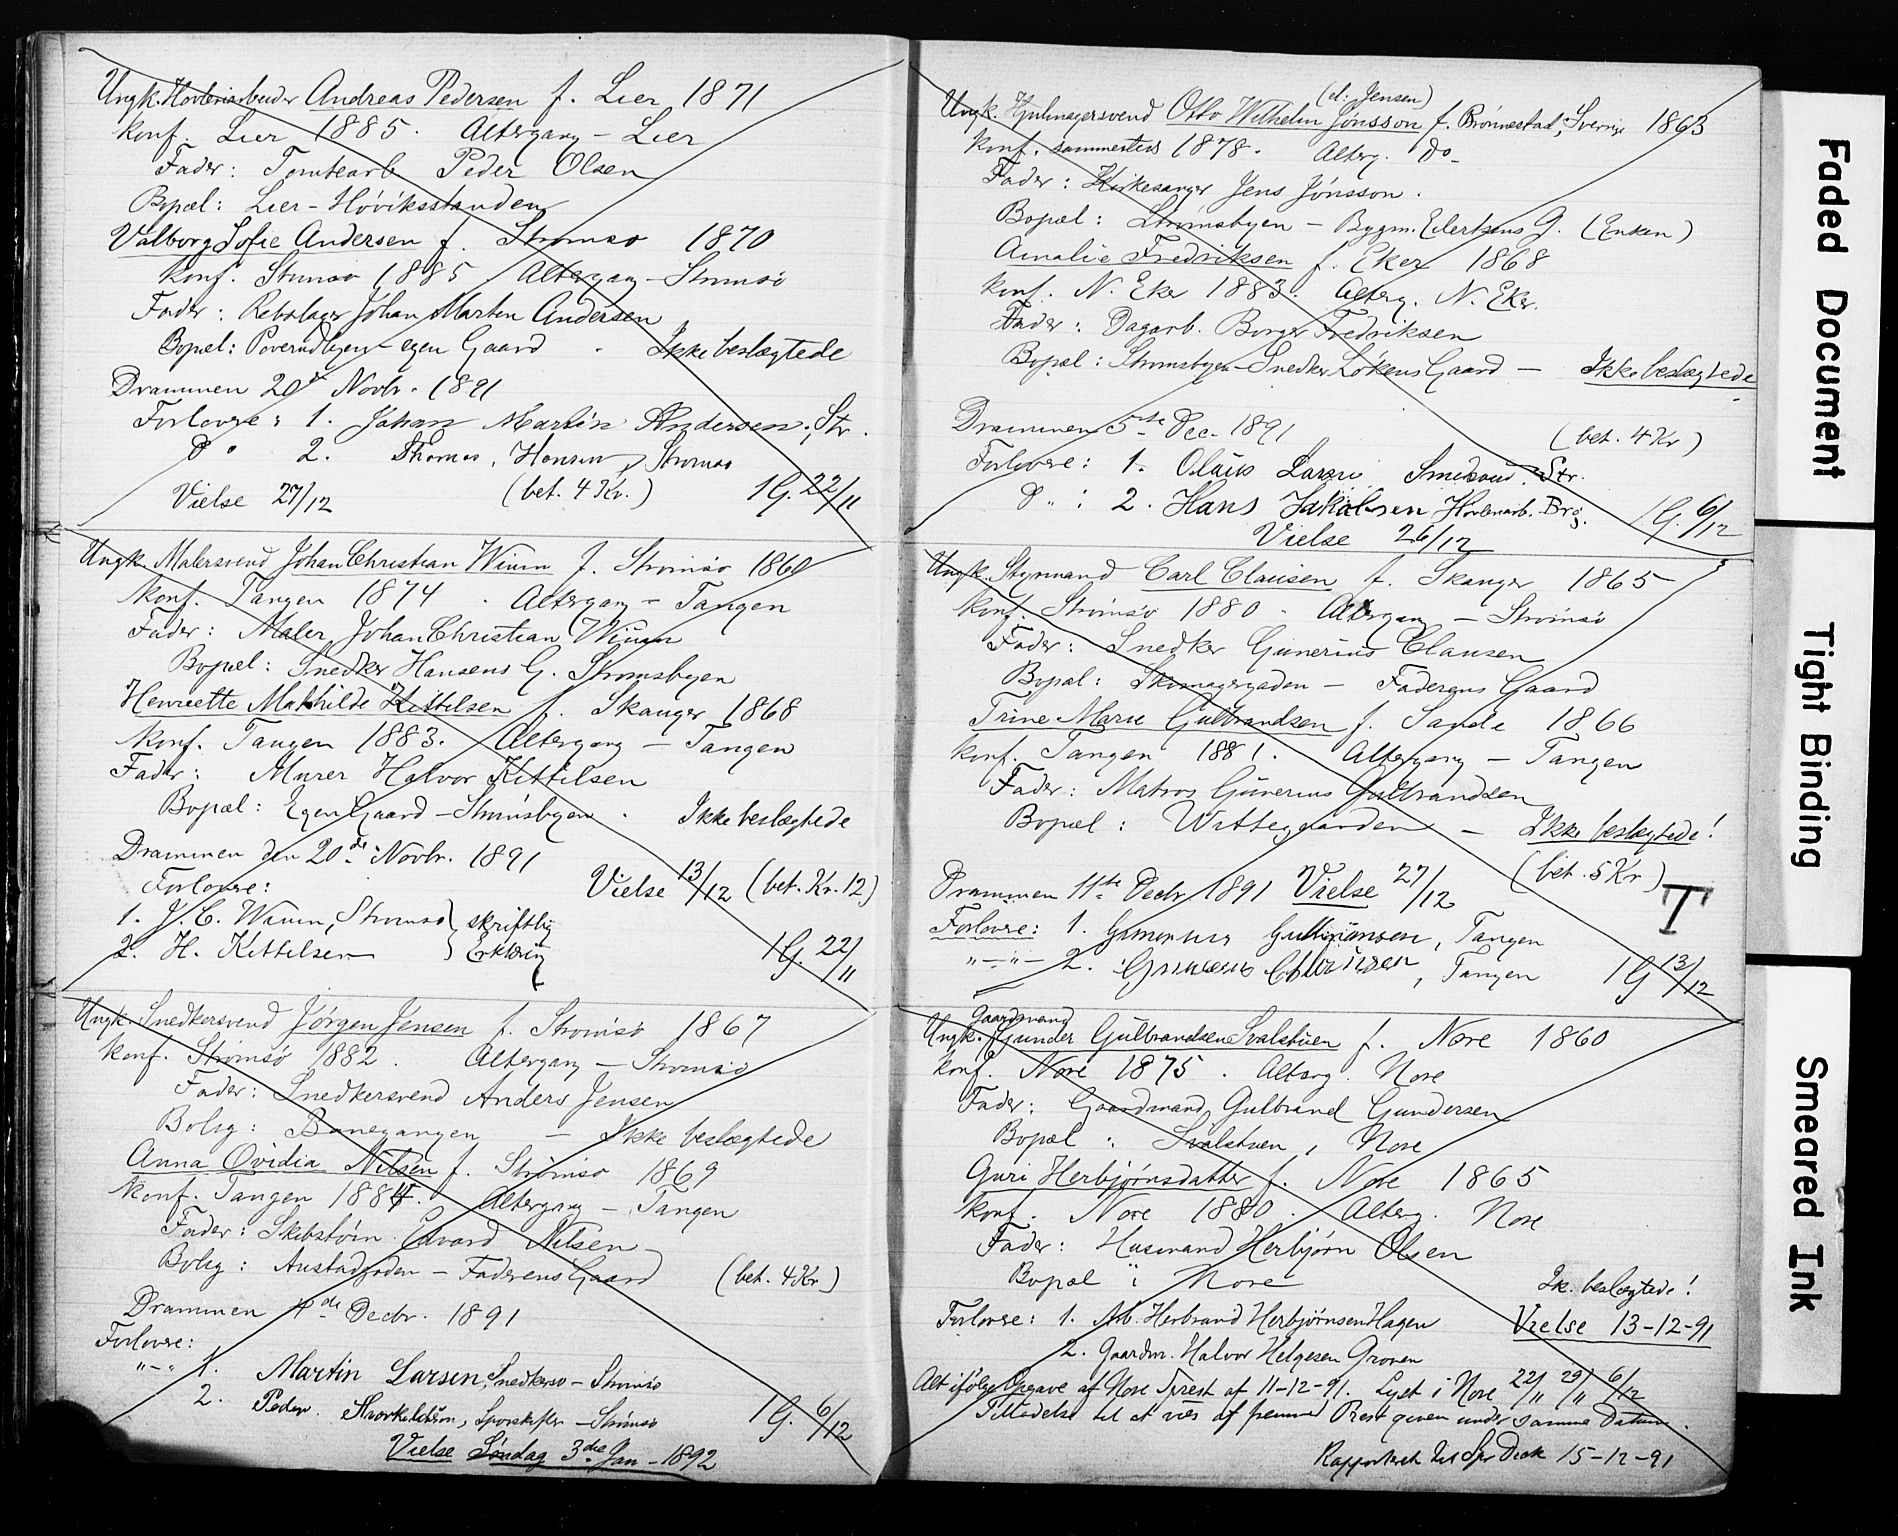 Ungk. Høvleriarbeider Andreas Pedersen f. Lier 1871
Konf. Lier 1885. Altergang - Lier
Fader: Tomtearb Peder Olsen
Bopæl: Lier - Høviksstranden
Valborg Sofie Andersen f. Strømsø 1870
Konf. Strømsø 1885 Altergang - Strømsø
Fader: Rebslager Johan Martin Andersen
Bopæl: egen Gaard. Ikke beslægtede
Drammen 20de Novbr. 1891
Forlovere: 1. Johan Martin Andersen, Str.
Do 2. Thomas Hansen, Strømsø
Vielse 27/12 (bet. 4 Kr.) 1 G. 22/11
Ungk. Malersvend Johan Christian Wium f. Strømsø 1860
Konf. Tangen 1874. Altergang - Tangen
Fader: Maler Johan Christian Wium
Bopæl: Snedker Hansens G. Strømsbyen
Henriette Mathilde Kittilsen f. Skauger 1868
Konf. Tangen 1883. Altergang - Tangen
Fader: Murer Halvor Kittilsen
Bopæl: Egen Gaard - Strømsbyen. Ikke beslægtede
Drammen den 20de Novbr. 1891
Forlovere: Vielse 13/12 (bet. Kr. 12)
1. J. C. Wium, Strømsø } skriftlig
2. H. Kittilsen } Erklæring 1 G. 22/11
Ungk. Snedkersvend Jørgen Jensen f. Strømsø 1867
Konf. Strømsø 1882. Altergang - Strømsø
Fader: Snedkersvend Anders Jensen
Bolig: Banegangen - Ikke beslægtede
Anna Ovidia Nilsen f. Strømsø 1869
Konf. Tangen 1884. Altergang - Tangen
Fader: Skibstøm. Edvard Nilsen
Bolig: Austadgaden - Faderens Gaard (bet. 4 Kr)
Drammen 4de Decbr. 1891
Forlovere:
"-" 1. Martin Larsen, Snedkersv - Strømsø
2. Peder - Strømsø 1 G. 6/12
Vielse Søndag 3die Jan - 1892
(el. Jensen)
Ungk. Hjulmagersvend Otto Wilhelm Jønsson f. Brønnestad, Sverige 1863
Konf. sammesteds 1878. Alterg. do -
Fader: Kirkesanger Jens Jønsson.
Bopæl: Strømsbyen - Bygm. Eilertsens G. (Enken)
Amalie Fredriksen f. Eker 1868
Konf. N. Eker 1883. Alterg. N. Eker.
Fader: Dagarb. Borger Fredriksen
Bopæl: Strømsbyen - Snedker Løkens Gaard - Ikke beslægtede
Drammen 5te Dec. 1891 (bet. 4 Kr)
Forlovere: 1. Olaus Larsen Smedsvend. Str.
Do : 2. Hans Jakobsen Høvleriarb. Brg. 1 G. 6/12
Vielse 26/12
Ungk. Styrmand Carl Clausen f. Skauger 1865
Konf. Strømsø 1880. Altergang - Strømsø
Fader: Snedker Gunerius Clausen
Bopæl: Skomagergaden - Faderens Gaard
Trine Marie Gulbrandsen f. Sande 1866
Konf. Tangen 1881. Altergang - Tangen
Fader: Matros Gunerius Gulbrandsen
Bopæl: Wittegaarden - Ikke beslægtede!
(bet. 5 Kr)
Drammen 11te Decbr 1891 Vielse 27/12 T
Forlovere: 1. Gunerius Gulbransen, Tangen
"-"- 2. Gunerius Clausen, Tangen 1 G 13/12
Gaardmand
Ungk. Gunder Gulbrandsen Svalstuen f. Nore 1860
Konf. Nore 1875. Alterg. Nore
Fader: Gaardmand Gulbrand Gundersen
Bopæl: Svalstuen, Nore
Guri Herbjørnsdatter f. Nore 1865
Konf. Nore 1880. Alterg. Nore
Fader: Husmand Herbjørn Olsen
Bopæl i Nore Ik. beslægtede!
Forlovere: 1. Arb. Herbrand Herbjørnsen Hagen Vielse 13-12-91
2. Gaardm. Halvor Helgesen Groven
Alt ifølge Opgave af Nore Sprest af 11-12-91. Lyst i Nore 22/11 29/11 6/12
Tilladelse til at vies af fremmed Prest given under samme Datum.
Rapporteret til Spr Deck 15-12-91
Faded Document
Tight Binding
Smeared Ink